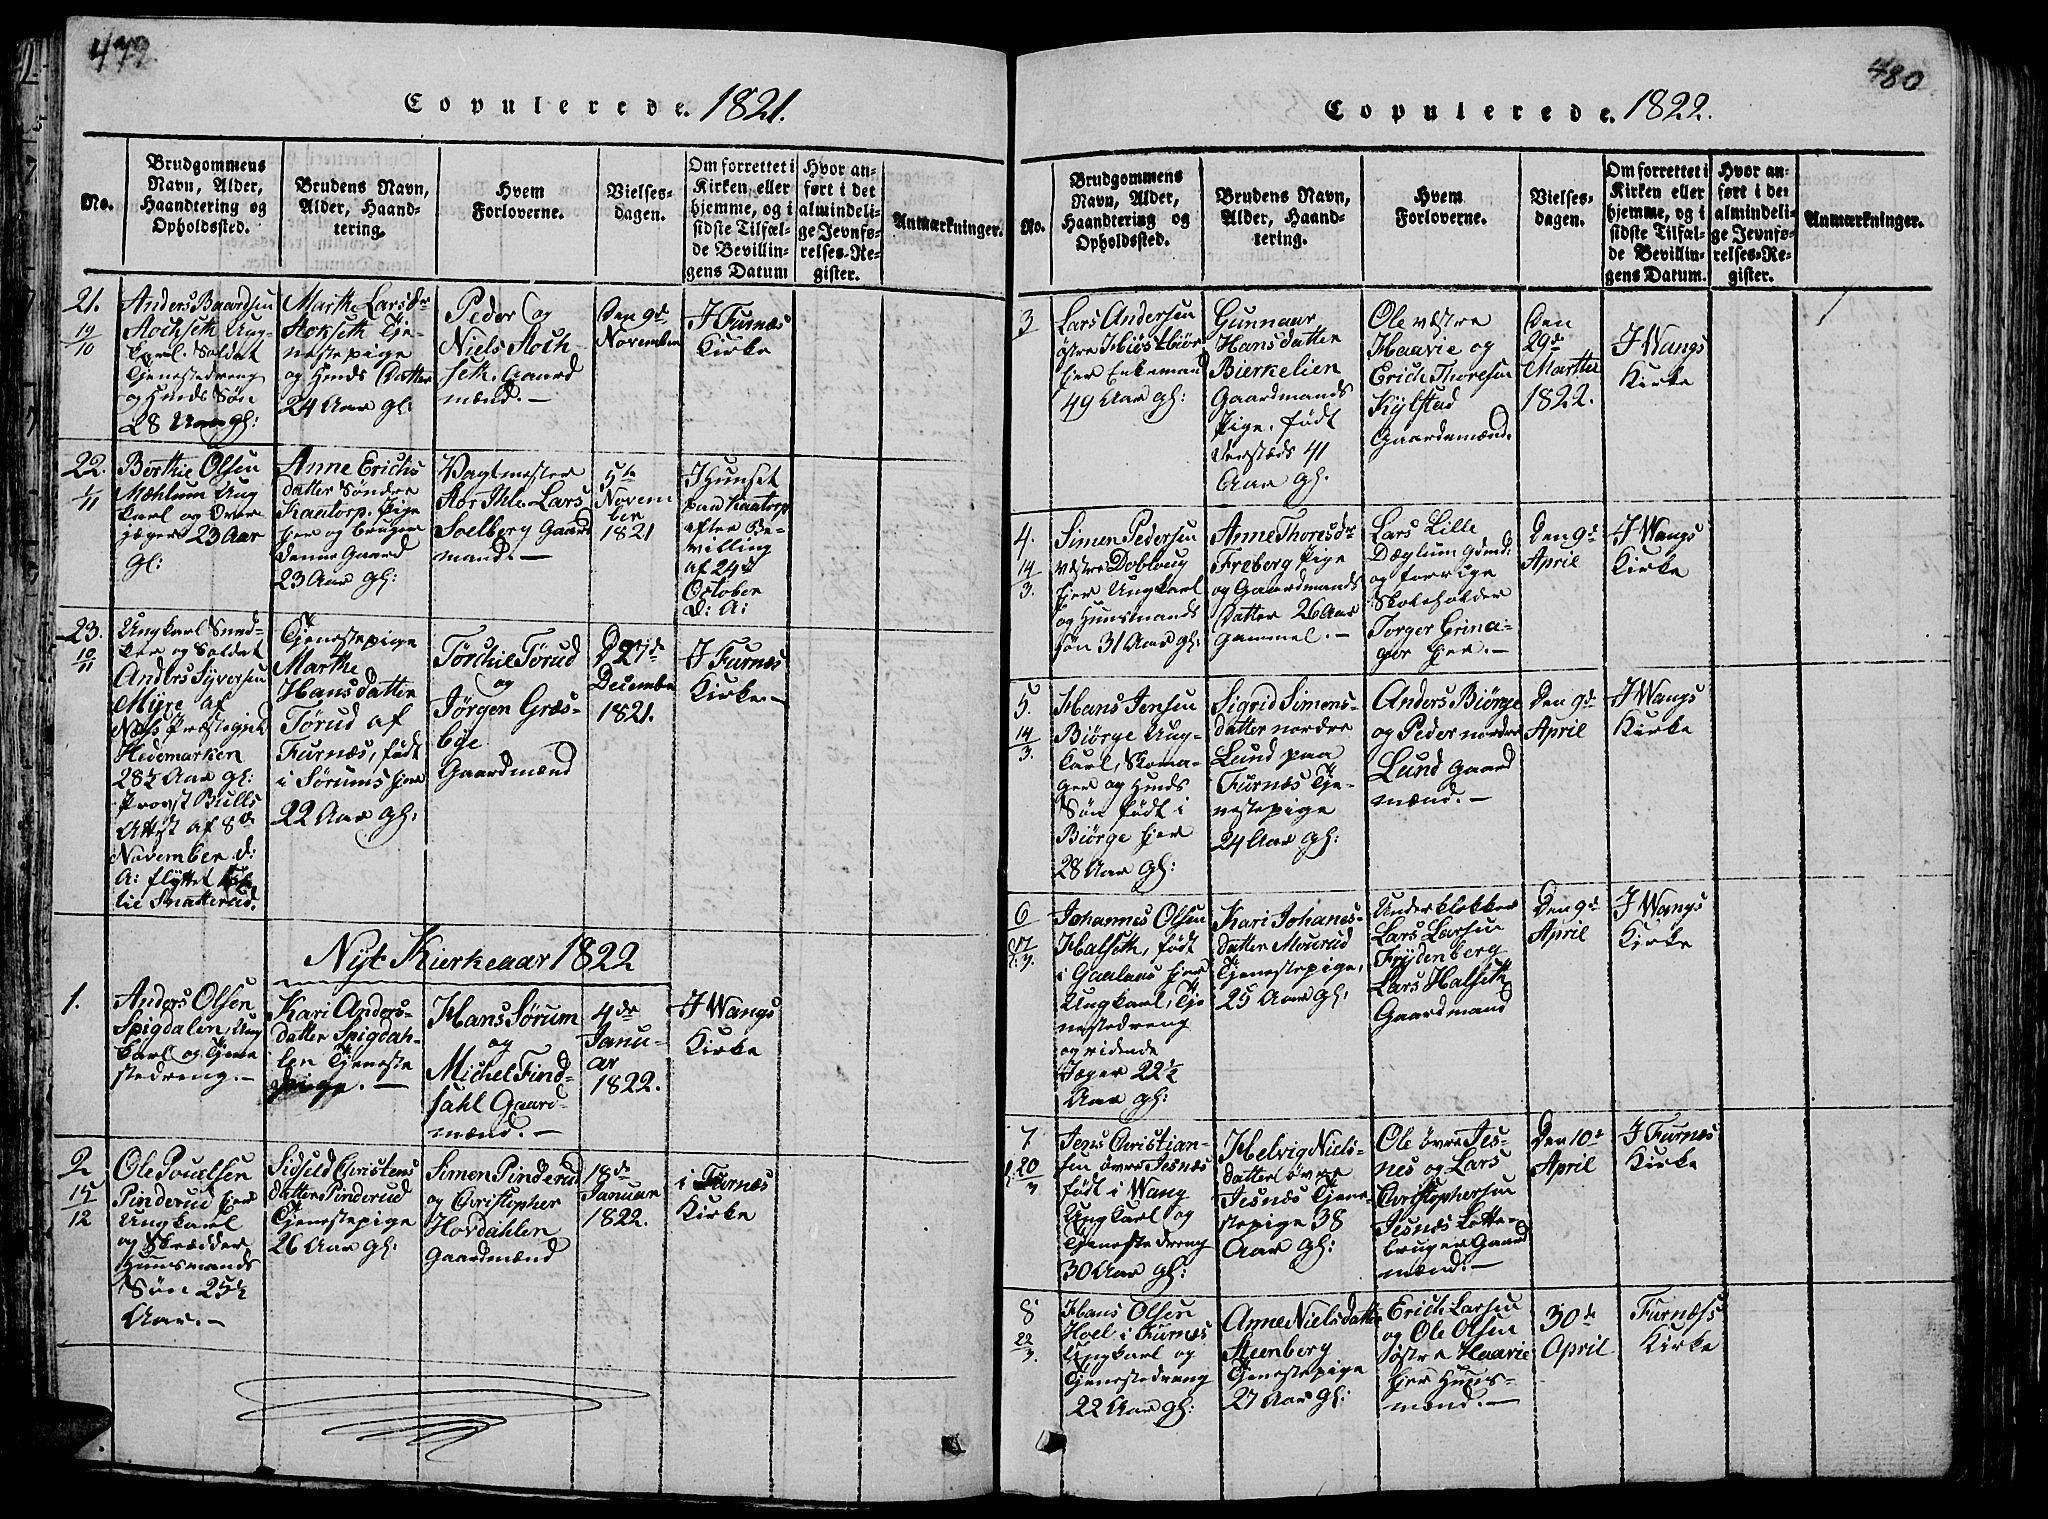 479.
Copulerede. 1821.
No.
Brudgommens
Navn, Alder,
Haandtering og
Opholdssted.
Brudens Navn,
Alder, Haand-
tering.
Hvem
Forloverne.
Vielses-
dagen.
Om forrettet i
Kirken eller
hjemme, og i
sidste Tilfæl-
de Bevillin-
gens Datum
Hvor an-
ført i det
almindeli-
ge Jevnfø-
relses-Re-
gister.
Anmærkninger.
21.
19/10
Anders Baardsen
Stochseth Ung-
karl. Soldat
Tjenestedreng
og Huusds Søn
28 Aar gl:
Marthe Larsdr
Stokseth Tje-
nestepige
og Huusds Datter
24 Aar gl:
Peder og
Niels Stoch-
seth. Gaard
mænd. —
Den 9de
November
I Furnæs
Kirke
22.
1/11
Berthie Olsen
Mæhlum Ung
karl og
jæger 23 Aar
gl:
Anne Erichs
datter Søndre
Kaatorp. Pige
her og bruger
denne Gaard
23 Aar gl:
Vagtmester
Lars
Soelberg Gaard
mænd. —
5te
Novem
ber
1821
I Huuset
paa Kaatorp
efter Be-
villing
af 24de
October
d: A:
23.
10/11
Ungkarl Sned-
ker og Soldat
Anders Syversen
Myre af
Næss Præstegield
Hedemarken
28½ Aar gl:
Provst Bulls
Attest af 8de
November d:
A: flyttet
til Snatterud.
Tjenestepige
Marthe
Hansdatter
Torud af
Furnæs, født
i Sørums her
22 Aar gl:
Torchil Torud
og
Jørgen Græs-
bye
Gaardmænd
D 27de
December
1821.
I Furnæs
Kirke. —
Nyt Kierkeaar 1822
1.
Anders Olsen
Spigdalen, Ung
karl og Tjene
stedreng. —
Kari Anders-
datter Spigdah-
len Tjeneste
pige. —
Hans Sørum
og
Michel Find-
sahl Gaard-
mænd. —
4de
Janu-
ar
1822.
I Wangs
Kirke
2
15/12
Ole Pouelsen
Pinderud her
Ungkarl
og Skrædder
Huusmands
Søn 25½
Aar. —
Sidseld Christens
datter Pinderud
Tjenestepige
26 Aar gl:
Simen Pinderud
og Christopher
Hovdahlen
Gaardmænd
18de
Januar
1822.
i Furnæs
Kirke
480
Copulerede. 1822.
No.
Brudgommens
Navn, Alder,
Haandtering og
Opholdssted.
Brudens Navn,
Alder, Haand-
tering.
Hvem
Forloverne.
Vielses-
dagen.
Om forrettet i
Kirken eller
hjemme, og i
sidste Tilfæl-
de Bevillin-
gens Datum.
Hvor an-
ført i det
almindeli-
ge Jevnfø-
relses-Re-
gister.
Anmærkninger.
3
Lars Andersen
østre
her Enkemand
49 Aar gl:
Gunnaar
Hansdatter
Bierkelien
Gaardmands
Pige. født
dersteds 41
Aar gl.
Ole væstre
Haavie og
Erich Thoresen
Kylstad
Gaardemænd.
Den
29de
Martti
1822.
I Wangs
Kirke
4.
14/3.
Simen Pedersen
væstre Dobloug
her Ungkarl
og Huusmands
søn 31 Aar gl:
Anne Thoresdr
Freberg Pige
og Gaardmands
Datter 26 Aar
gammel. —
Lars Lille
Dæglum Gdmd:
og forrige
Skoleholder
Torger Grina-
ger her. —
Den 9de
April
I Wangs
Kirke
5.
14/3.
Hans Jensen
Biørge Ung-
karl, Skoma-
ger og Huuds
Søn født i
Biørge her
28 Aar gl:
Sigrid Simens-
datter nordre
Lund paa
Furnæs Tje-
nestepige
24 Aar gl:
Anders Biørge
og Peder nordre
Lund Gaard
mænd. —
Den 9de
April
I Wangs
Kirke
6
17/3.
Johannes Olsen
Halseth, født
i Gaalaas her
Ungkarl, Tje
nestedreng
og ridende
Jæger 22½
Aar gl:
Kari Johanes-
datter Mourud
Tjenestepige,
25 Aar gl:
Underklokker
Lars Larsen
Frydenberg
Lars Halseth
Gaardmand
Den 9de
April
I Wangs
Kirke
7
20/3
Jens Christian-
sen øvre Jesnæs
født i Wang
Ungkarl og
Tjenestedreng
30 Aar gl:
Helvig Niels-
datter øvre
Jesnæs Tjene-
stepige 38
Aar gl:
Ole øvre Jes-
nes og Lars
Christophersen
Jesnæs Lotte-
bruger Gaard
mænd. —
Den 10de
April
I Furnæs
Kirke
8
22/3.
Hans Olsen
Hoel i Furnæs
Ungkarl og
Tjenestedreng
22 Aar gl:
Anne Nielsdatter
Steenberg
Tjenestepige
27 Aar gl:
Erich Larsen
og Ole Olsen
østre Haavie
her Huus-
mænd. —
30te
April
Furnæss
Kirke